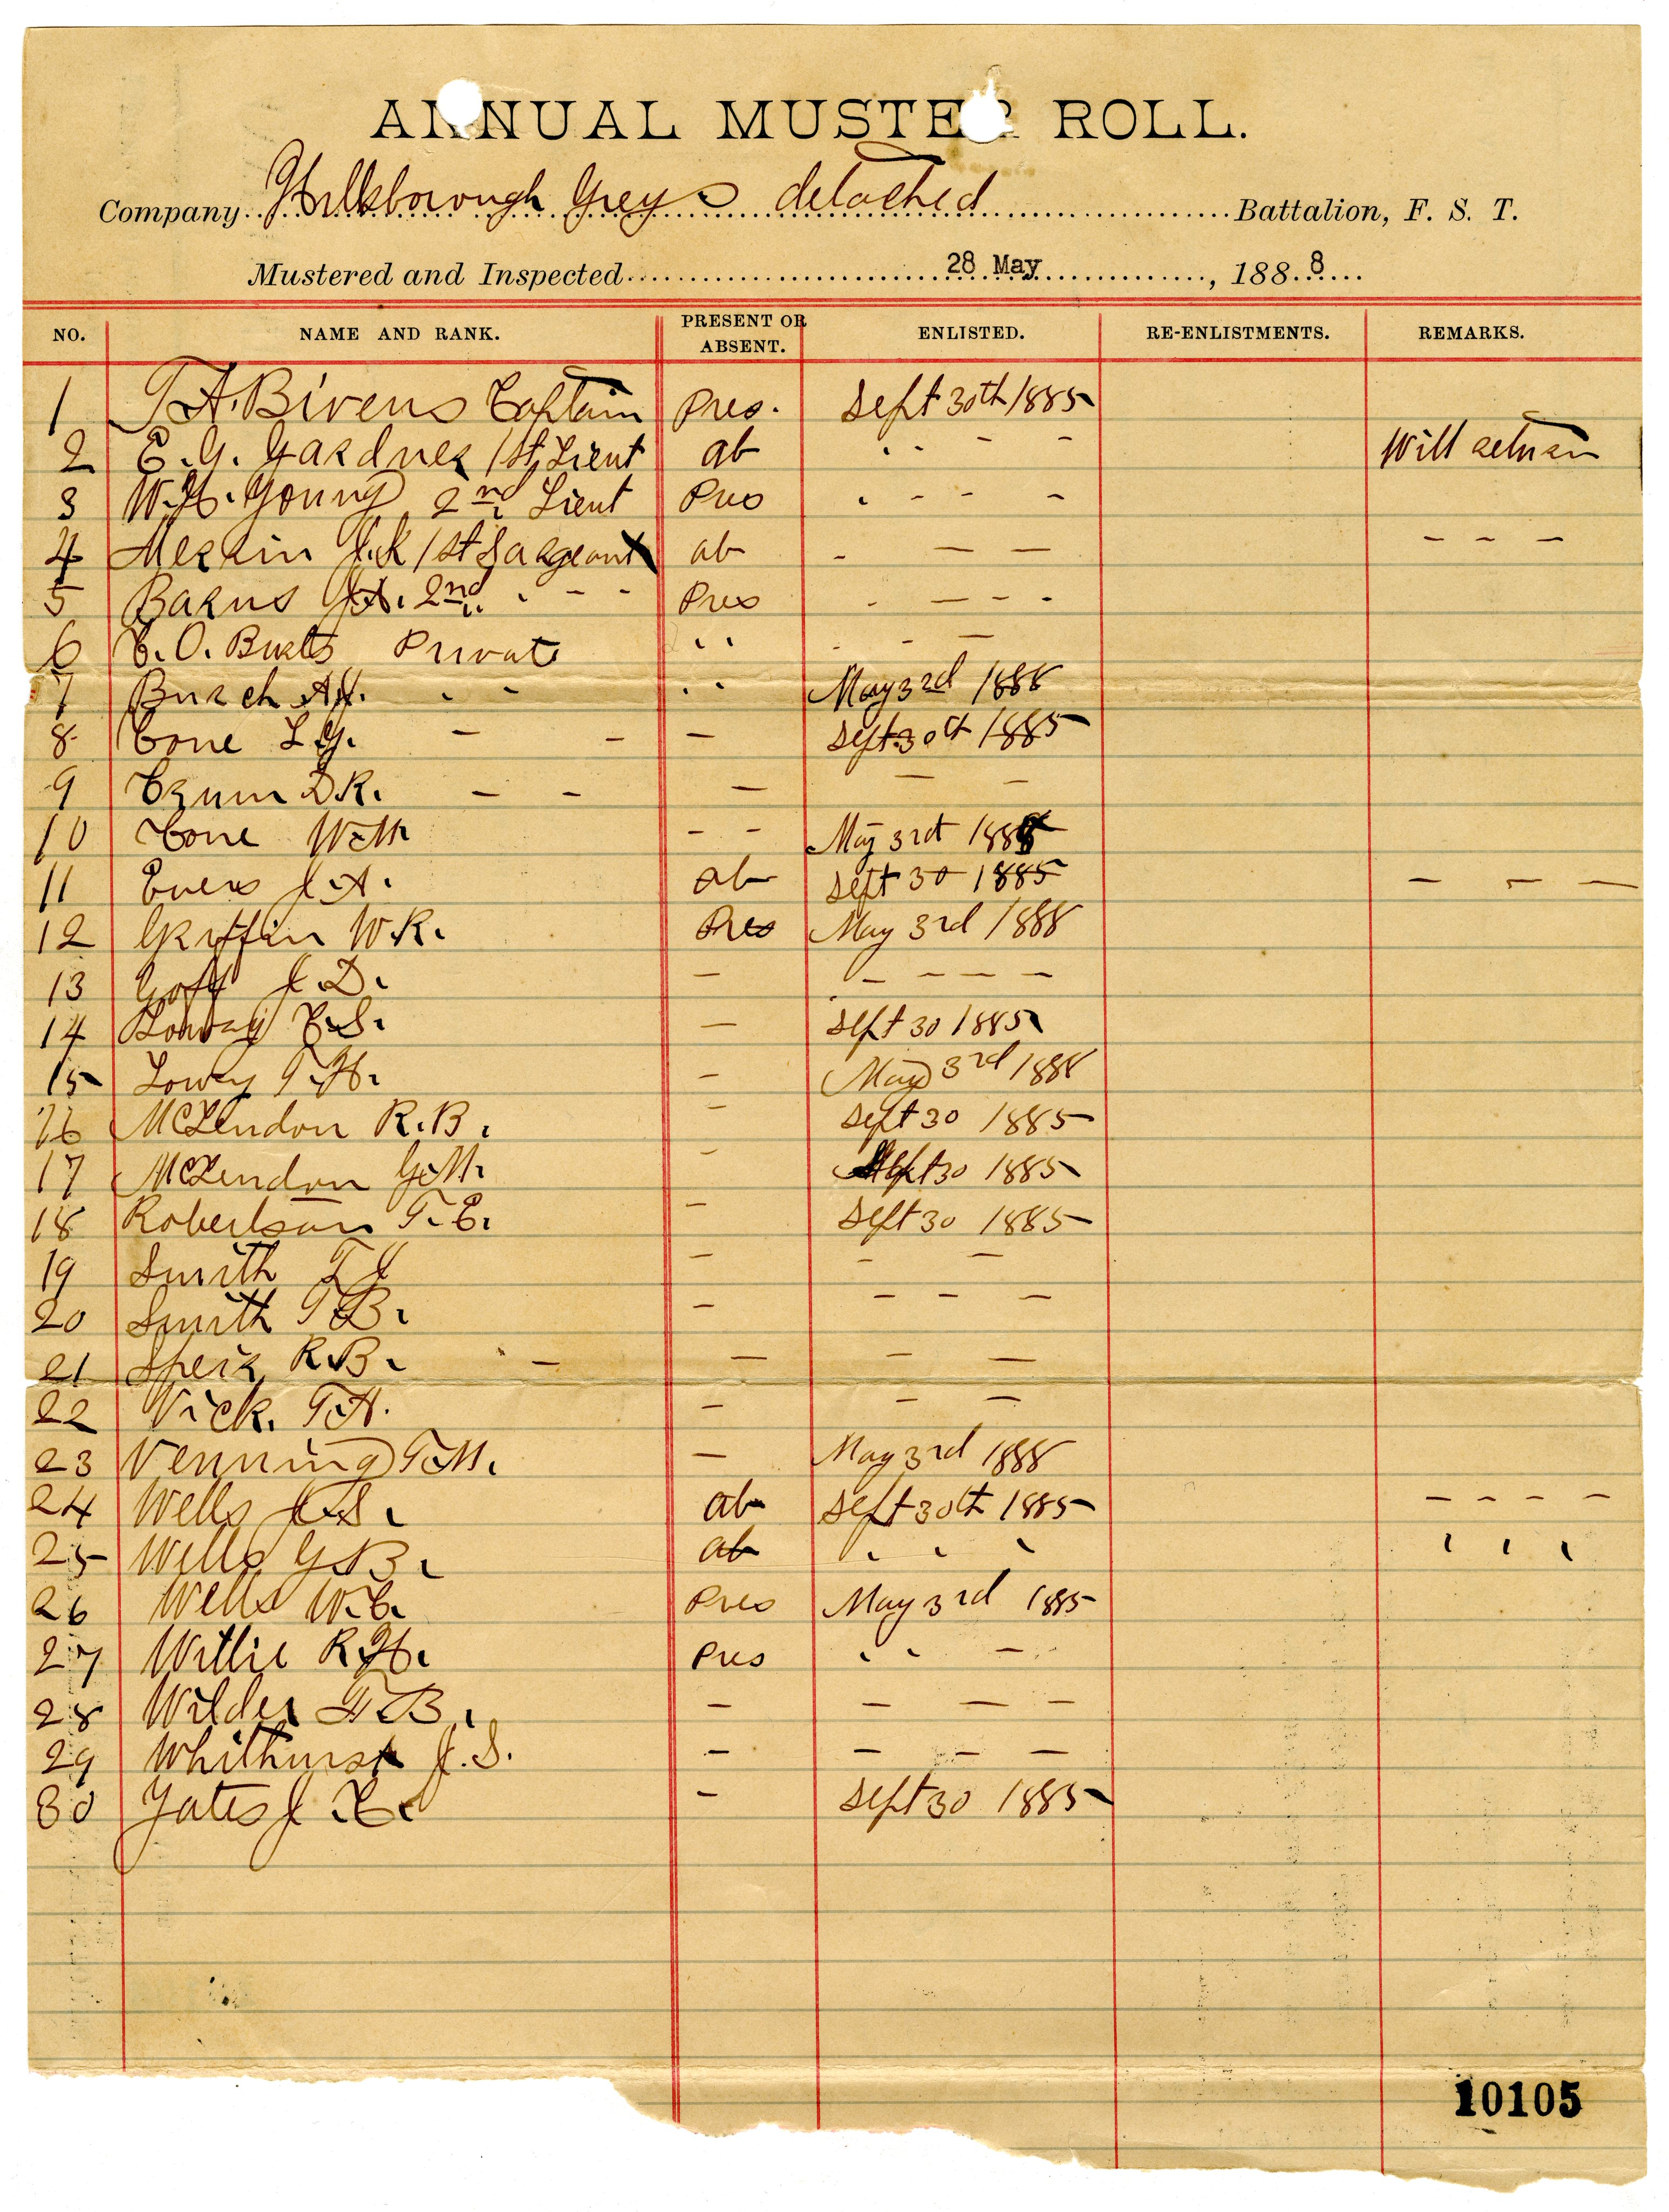 ANNUAL MUSTER ROLL.
Company Hillsborough Greys detached Battalion, F. S. T.
Mustered and Inspected 28 May, 1888
NO. NAME AND RANK. PRESENT OR ABSENT. ENLISTED. RE-ENLISTMENTS. REMARKS.
1 T.A. Bivens Captain Pres. Sept 30th 1885
2 E. G. Gardner 1st Lieut ab " - - Will
3 W.H. Young 2nd Lieut Pres " - - -
4 Merrin J.K 1st Sargeant ab - — — - - -
5 Barns J.A. 2nd " - - Pres - — - -
6 C. O. Burts Private " - —
7 Burch A.J. " - " May 3rd 1888
8 Cone L.G. - - — Sept 30th 1885
9 Crum D.R. - - — — -
10 Cone W.M - - May 3rd 1888
11 Evers J.A. ab Sept 30 1885 — — —
12 Griffin W.R. Pres May 3rd 1888
13 Goff J.D. — - — — —
14 C.S. — Sept 30 1885
15 Lowry T.H. — May 3rd 1888
16 McLendon R.B. - Sept 30 1885
17 McLendon G.M. - Sept 30 1885
18 Robertson T.E. - Sept 30 1885
19 Smith T J — - —
20 Smith T.B. — - - —
21 Speir R.B. - — - —
22 Vick. T.A. — - —
23 Venning T.M. — May 3rd 1888
24 Wells J.S. ab Sept 30th 1885 - - - -
25 Wells G.B. ab " " " " " "
26 Wells W.C. Pres May 3rd 1885
27 Willie R.H. Pres " " -
28 Wilder F.B. — - — -
29 Whithurst J.S. — — — —
30 Yates J.C. - Sept 30 1885
10105